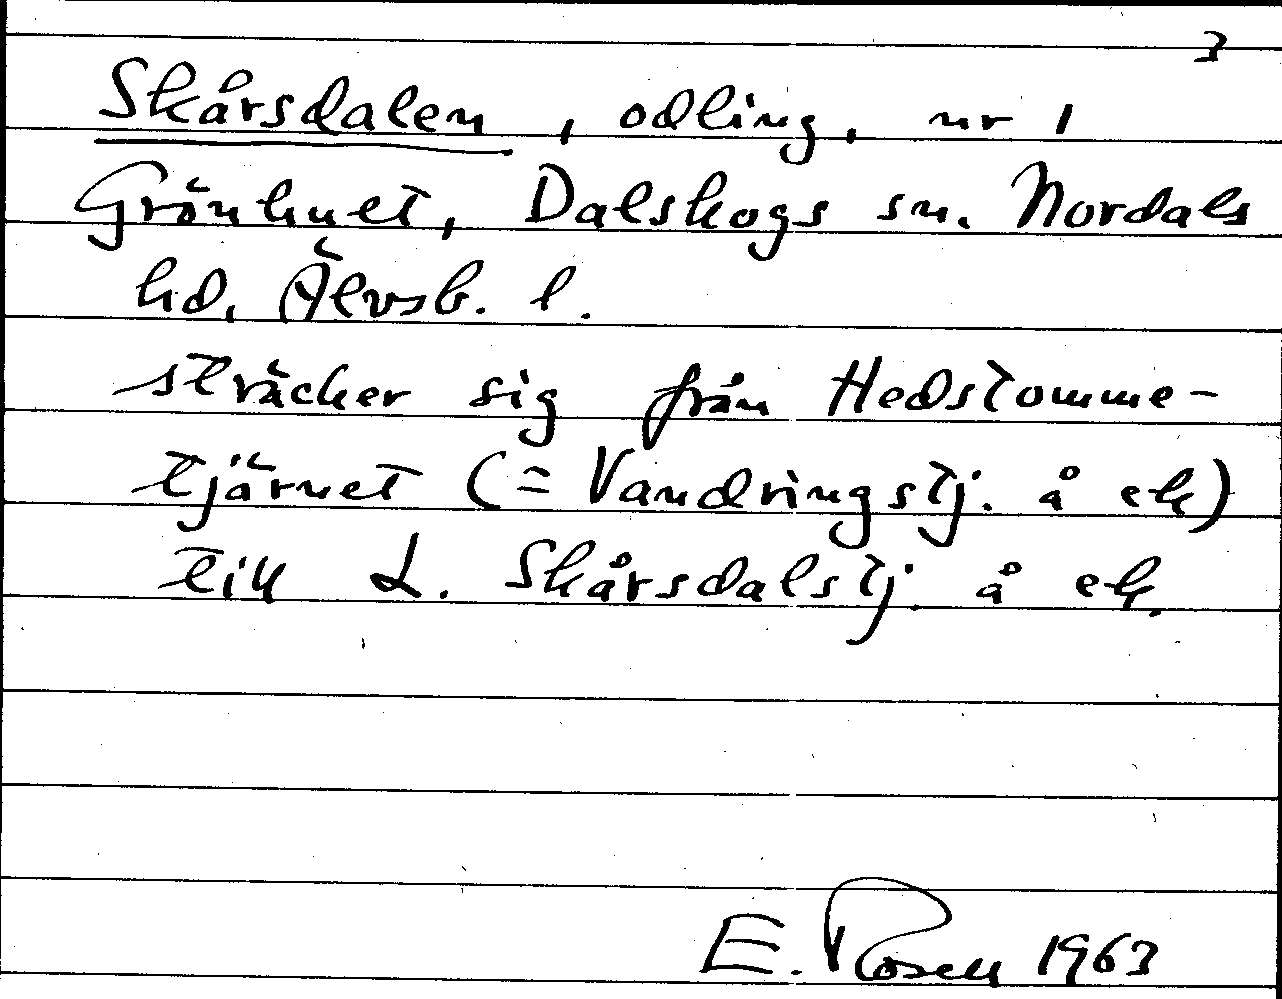 3
Skårsdalen, odling, nr 1
Grönhult, Dalskogs sn. Nordals
hd. Älvsb. l.
sträcker sig från Hedstomme-
tjärnet (= Vandringstj. å ek)
till L. Skårsdalstj. å ek.
E. Rosen 1963